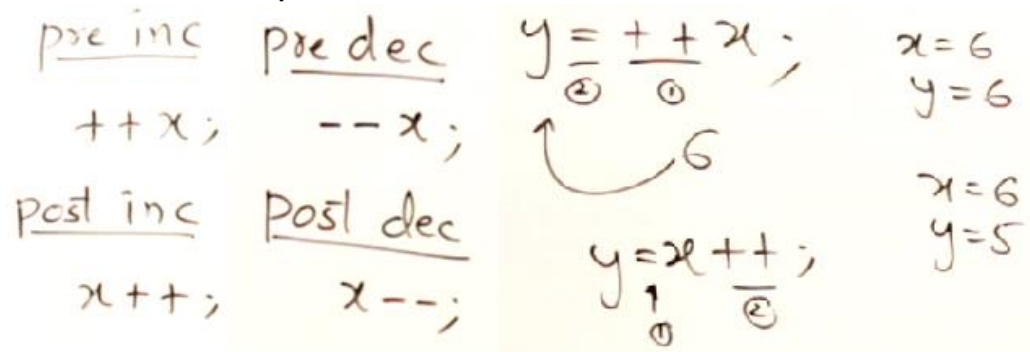 pre inc
++x;
post inc
x++;
pre dec
--x;
post dec
x--;
y = ++x;
② ①
6
y=x++;
① ②
x=6
y=6
x=6
y=5